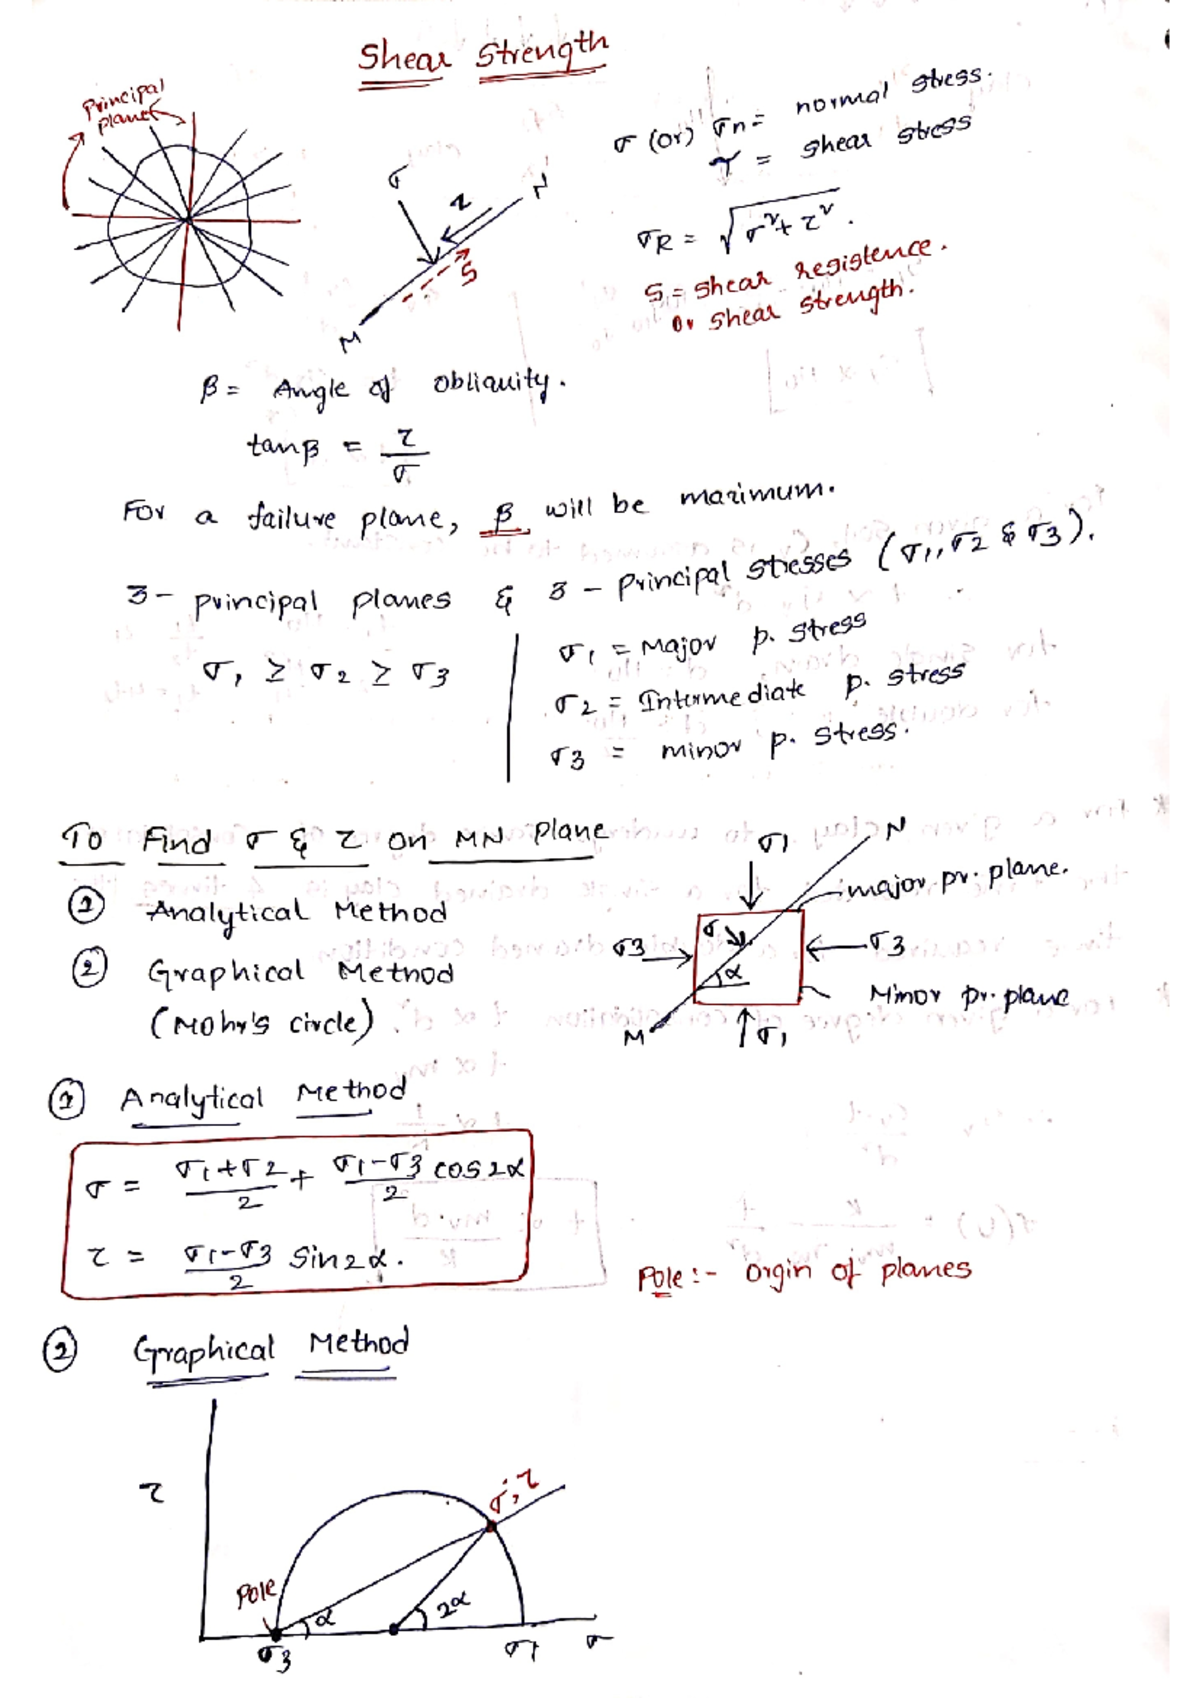 Shear Strength
Principal
planes
σ (or) σn = normal stress.
τ = shear stress
σ
τ
N
S
M
σR = √σ²+τ².
S = shear resistence.
or shear strength.
β = Angle of obliquity.
tanβ = τ/σ
For a failure plane, β will be maximum.
3 - principal planes & 3 - principal stresses (σ1, σ2 & σ3).
σ1 ≥ σ2 ≥ σ3
σ1 = Major p. stress
σ2 = Intermediate p. stress
σ3 = minor p. stress.
To Find σ & τ on MN plane
① Analytical Method
② Graphical Method
(Mohr's circle).
σ1
N
major pr. plane.
σ3
σ
α
σ3
Minor pr. plane
M
σ1
① Analytical Method
σ = σ1+σ2/2 + σ1-σ3/2 cos2α
τ = σ1-σ3/2 Sin2α.
Pole :- Orgin of planes
② Graphical Method
τ
σ, τ
Pole
α
2α
σ3
σ1
σ